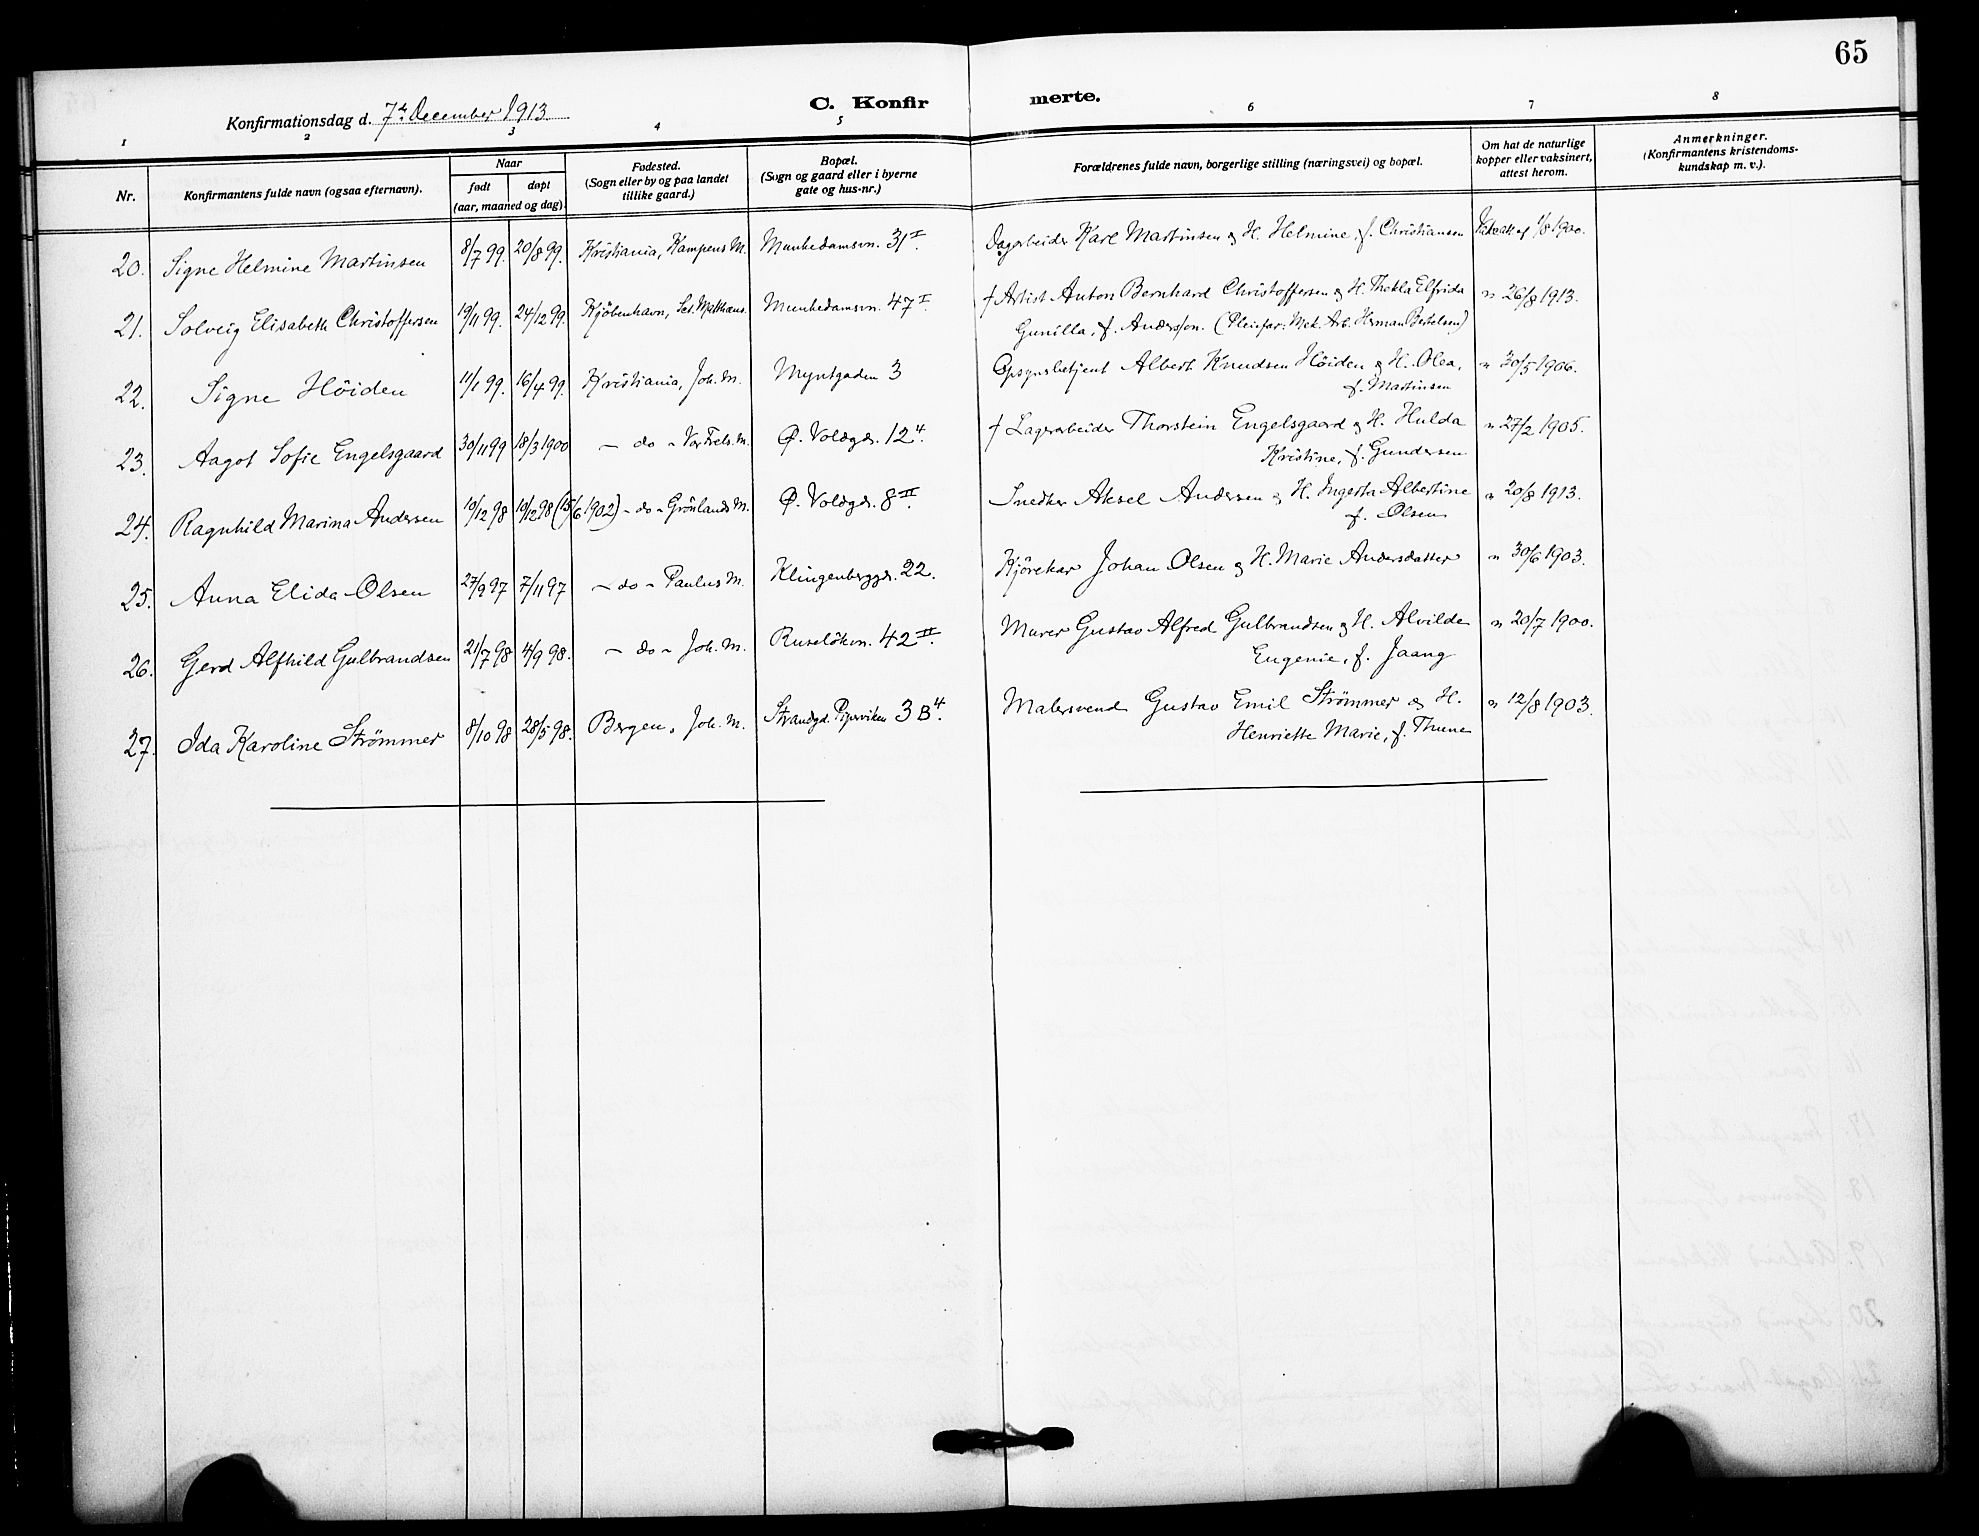 65
Konfirmationsdag d. 7de December 1913.
C. Konfirmerte.
1 2 3 4 5 6 7 8
Nr.
Konfirmantens fulde navn (ogsaa efternavn).
Naar
født
døpt
(aar, maaned og dag).
Fødested.
(Sogn eller by og paa landet
tillike gaard.)
Bopæl.
(Sogn og gaard eller i byerne
gate og hus-nr.)
Forældrenes fulde navn, borgerlige stilling (næringsvei) og bopæl.
Om hat de naturlige
kopper eller vaksinert,
attest herom.
Anmerkninger.
(Konfirmantens kristendoms-
kundskap m. v.).
20. Signe Helmine Martinsen 8/7 99. 20/8 99. Kristiania, Kampens M. Munkedamsvn. 31 I. Dagarbeider Karl Martinsen og H. Helmine, f. Christiansen 1/8 1900.
21. Solveig Elisabeth Christoffersen 19/11 99. 24/12 99. Kjöbenhavn, Sct. Matthæus. Munkedamsvn. 47 I. † Artist Anton Bernhard Christoffersen og H. Thekla Elfrida " 26/8 1913.
Gunilla, f. Andersson. (Pleiefar: Mek. Arb. Herman Bertelsen)
22. Signe Höiden 11/1 99. 16/4 99. Kristiania, Joh. M. Myntgaden 3 Opsynsbetjent Albert Knudsen Höiden og H. Olea, " 30/5 1906.
f. Martinsen
23. Aagot Sofie Engelsgaard 30/11 99 18/3 1900 - do - Vor Frels. M. Ø. Voldgd. 12 4. † Lagerarbeider Thorstein Engelsgaard og H. Hulda " 27/2 1905.
Kristine, f. Gundersen
24. Ragnhild Marina Andersen 10/12 98 19/12 98 (15/6 1902) - do - Grönlands M. Ø. Voldgd. 8 II. Snedker Aksel Andersen og H. Ingerta Albertine " 20/8 1913.
f. Olsen
25. Anna Elida Olsen 27/9 97 7/11 97 - do - Paulus M. Klingenberggd. 22. Kjörekar Johan Olsen og H. Marie Andersdatter " 30/6 1903.
26. Gerd Alfhild Gulbrandsen 21/7 98 4/9 98. - do - Joh. M. Ruselökvn. 42 II. Murer Gustav Alfred Gulbrandsen og H. Alvilde " 20/7 1900.
Eugenie, f. Jaang
27. Ida Karoline Strömmer 8/10 98 28/5 98. Bergen, Joh. M. Strandgd. Piperviken 3 B 4. Malersvend Gustav Emil Strömmer og H. " 12/8 1903.
Henriette Marie, f. Thune